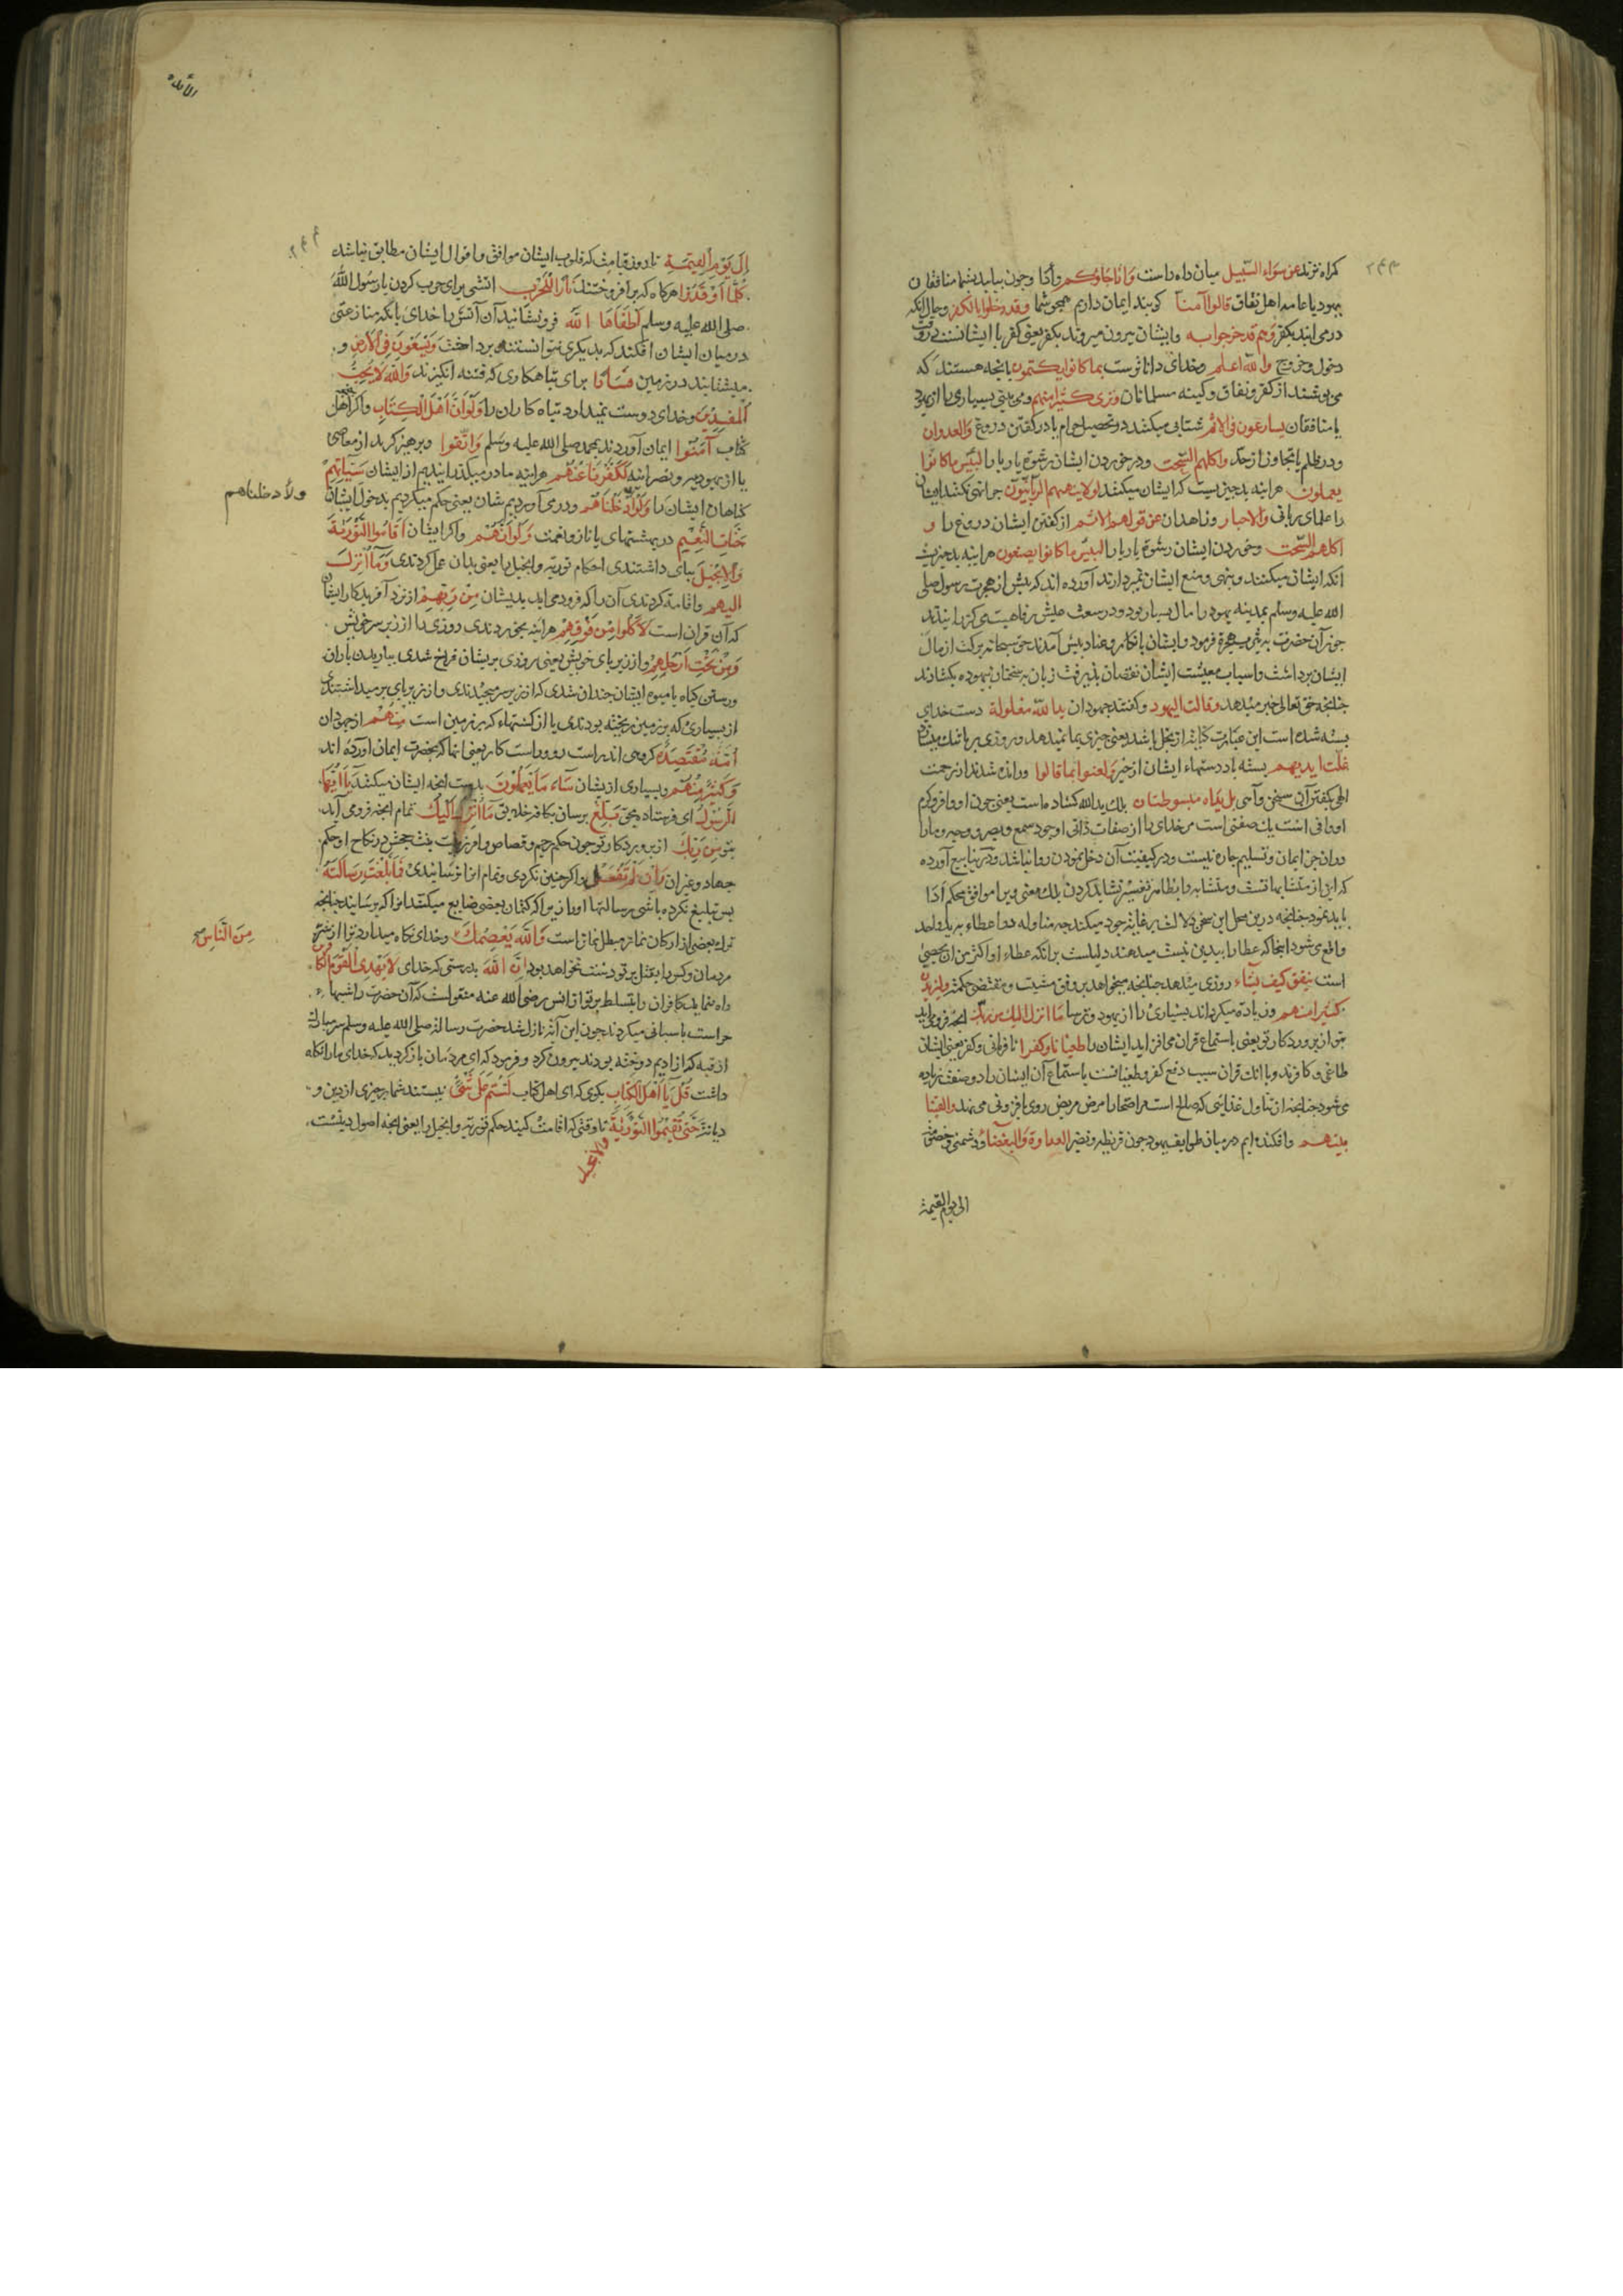 کمراه ترند عن سواء السّبیل میان راه راست واذا جاؤکم وأذا وجون بیایند بشما منافقان
یهود یا عامه اهل نفاق قالوا آمنا کویند ایمان داریم همجو شما وقد دخلوا بالکفر وحال آنکه
درمی ایند بکفر وهم قد خرجوا به وایشان بیرون میروند بکفر یعنی کفر با ایشانست در وقت
دخول وخروج والله اعلم وخدای داناترست بما کانوا یکتمون بانجه هستند که
می بوشند از کفر ونفاق وکینه مسلمانان وتری کثیرا منهم ومی بینی بسیاری را از یهود
یا منافقان یسارعون فی الاثم شتابی میکنند در تحصیل حرام یا در کفتن دروغ والعدوان
ودر ظلم یا تجاوز از حد واکلهم السّحت ودر خوردن ایشان رشوه یا ربا را لبئس ما کانوا
یعملون هراینه بد جیزیست که ایشان میکنند لولا ینهیهم الربانیون جرا نهی نکنند ایشان
را علمای ربانی والاحبار وزاهدان عن قولهم الاثم از کفتن ایشان دروغ را و
اکلهم السّحت وخوردن ایشان رشوه یا ربا را لبئس ما کانوا یصنعون هراینه بد جیزیست
انکه ایشان میکنند ونهی ومنع ایشان نمیردارند آورده اند که بیش از هجرت رسول صلی
الله علیه وسلم بمدینه یهود را مال بسیار بود ودر سعت عیش ورفاهیت می کزرانیدند
جون آن حضرت به یثرب هجرة فرمود وایشان بانکار وعناد بیش آمدند حق سبحانه برکت از مال
ایشان برداشت واسباب معیشت ایشان نقصان بذیرفت زبان بسخنان بیهوده بکشادند
جنانجه حق تعالی خبر میدهد وقالت الیهود وکفتند جهودان ید الله مغلولة دست خدای
بسته شده است این عبارت کنایه از بخل باشد یعنی جیزی بما نمیدهد وروزی بر ما تنک میسازد
غلت ایدیهم بسته باد دستهاء ایشان از خیر ولعنوا بما قالوا ورانده شدند از رحمت
الهی بکفتن آن سخن وآحی بل یداه مبسوطتان بلک ید الله کشاده ماست یعنی جون او وافر وکرم
او وافی است ید صفتی است مر خدای را از صفات ذاتی او جون سمع وبصر ووجه ومارا
دران جز ایمان وتسلیم جاره نیست ودر کیفیت آن دخل نمودن روا نباشد ودر ینابیع آورده
که این از متشابهاتست ومتشابه را بظاهر تفسیر نشاید کردن بلک معنی ویرا موافق محکم ادا
باید نمود جنانجه درین محل این سخن دلالت بر غایت جود میکند جه مناوله دو اعطاء به ید واحد
واقع می شود اینجا که عطا را بیدین نسبت میدهند دلیلست برانکه عطاء او اکثر من ان یحصی
است ینفق کیف یشاء روزی میدهد جنانجه میخواهد بر وفق مشیت ومقتضی حکمت ولیزیدن
کثیرا منهم وزیاده میکرداند بسیاری را از یهود وترسا ما انزل الیک من ربک انجه فرو می آید
بتو از برورد کار تو یعنی باستماع قران می افزاید ایشان را طغیانا وکفرا نافرمانی وکفر یعنی ایشان
طاغی وکافرند وبا انک قران سبب دفع کفر وطغیانست باستماع آن ایشان را دو صفت زیاده
می شود جنانجه از تناول غذایی که صالح است مر اصحارا مرض مریض روی بافزونی می نهد والقینا
بینهم وافکنده ایم در میان طوایف یهود جون قریظه ونضیر العداوة والبغضاء دشمنی وخصومت
الی یوم القیمة
المائدة
إلی یوم القیمة تا روز قیامت که قلوب ایشان موافق واقوال ایشان مطابق نباشد
کلّما أوقدوا هرکاه که برافروختند نارا للحرب اتشی برای حرب کردن با رسول الله
صلی الله علیه وسلم أطفأها الله فرو نشانید آن آتش را خدای بانکه منازعتی
در میان ایشان افکند که بدیکری نتوانستند برداخت ویسعون فی الأرض و
میشتابند در زمین فسادا برای تباهکاری که فتنه انکیزند والله لا یحب
المفسدین وخدای دوست نمیدارد تباه کاران را ولو أن أهل الکتاب واکر اهل
کتاب آمنوا ایمان آوردندی بمحمد صلی الله علیه وسلم واتقوا وبرهیز کردند از معاصی
یا از یهودیه ونصرانیه لکفرنا عنهم هراینه ما در میکذرانیدیم از ایشان سیآتهم
کناهان ایشان را ولادخلناهم ودرمی آوردیم شان یعنی حکم میکردیم بدخول ایشان
ولادخلناهم
جنات النعیم در بهشتهای با ناز ونعمت ولو أنهم واکر ایشان أقاموا التوریة
والإنجیل ببای داشتندی احکام توریه وانجیل را یعنی بدان عمل کردندی وما أنزل
الیهم واقامت کردندی آن را که فرود می اید بدیشان من ربهم از نزد آفریدکار ایشان
که آن قران است لأکلوا من فوقهم هراینه بخوردندی روزی را از زبر سر خویش
ومن تحت أرجلهم واز زیر بای خویش یعنی روزی بریشان فراخ شدی بباریدن باران
ورستن کیاه یا میوه ایشان جندان شدی که از زبر سر میجیدندی واز زیر بای بر میداشتندی
از بسیاری که بر زمین ریخته بودندی یا از کشتهاء که بر زمین است منهم از جهودان
أمة مقتصدة کروهی اند راست رو وراست کار یعنی انها که بحضرت ایمان آورده اند
وکثیر منهم وبسیاری ازیشان ساء ما یعملون بدست انجه ایشان میکنند یا أیها
الرسول ای فرستاده بحق بلغ برسان بکافه خلایق ما أنزل إلیک تمام انجه فرو می آید
بتو من ربک از برورد کار تو جون حکم رجم وقصاص وامر زینت بنت جحش در نکاح او حکم
جهاد وغیر ان وإن لم تفعل واکر جنین نکردی وتمام انرا نرسانیدی فما بلغت رسالته
بس تبلیغ نکرده باشی رسالتها اورا زیرا که کتمان بعضی ضایع میکند انرا که برسانید جنانجه
ترک بعضی از ارکان نماز مبطل نماز است والله یعصمک وخدای نکاه میدارد ترا از شر
من الناس صح
مردمان وکس را بقتل بر تو دست نخواهد بود إن الله بدرستی که خدای لا یهدی القوم الکافرین
راه ننماید کافران را بتسلط بر تو از انس رضی الله عنه منقولست که آن حضرت را شبها
حراست باسبانی میکردند جون این آیه نازل شد حضرت رسالة صلی الله علیه وسلم سر مبارک
از قبه که از ادیم دوخته بودند بیرون کرد وفرمود که ای مردمان باز کردید که خدای مارا نکاه
داشت قل یا أهل الکتاب بکوی که ای اهل کتاب لستم علی شیء نیستند شما بر جیزی از دین و
دیانت حتی تقیموا التوریة تا وقتی که اقامت کنید حکم توریه وانجیل را یعنی انجه اصول دینست
والانجیل